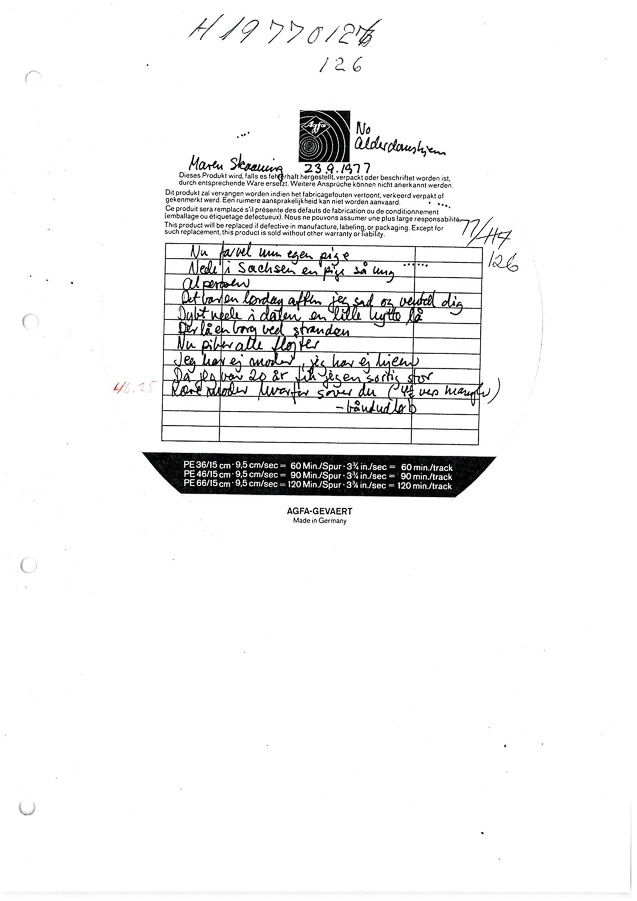 H 1977012
126
Agfa
No
Alderdomshjem
Maren Skaaning 23.9.1977
Dieses Produkt wird, falls es fehlerhaft hergestellt, verpackt oder beschriftet worden ist,
durch entsprechende Ware ersetzt. Weitere Ansprüche können nicht anerkannt werden.
Dit produkt zal vervangen worden indien het fabricagefouten vertoont, verkeerd verpakt of
gekenmerkt werd. Een ruimere aansprakelijkheid kan niet worden aanvaard.
Ce produit sera remplacé s'il présente des défauts de fabrication ou de conditionnement
(emballage ou étiquetage défectueux). Nous ne pouvons assumer une plus large responsabilité.
This product will be replaced if defective in manufacture, labeling, or packaging. Except for
such replacement, this product is sold without other warranty or liability.
77/117
126
Nu farvel min egen pige
Nede i Sachsen en pige så ung
Alperosen
Det var en lørdag aften jeg sad og ventet dig
Dybt nede i dalen en lille hytte lå
Der lå en borg ved stranden
Nu piber alle fløjter
Jeg har ej moder, jeg har ej hjem
Da jeg var 20 år fik jeg en sorrig stor
46.25
Kære moder hvorfor sover du (4½ vers mangler)
- båndudløb
PE 36/15 cm · 9,5 cm/sec = 60 Min./Spur · 3¾ in./sec = 60 min./track
PE 46/15 cm · 9,5 cm/sec = 90 Min./Spur · 3¾ in./sec = 90 min./track
PE 66/15 cm · 9,5 cm/sec = 120 Min./Spur · 3¾ in./sec = 120 min./track
AGFA-GEVAERT
Made in Germany